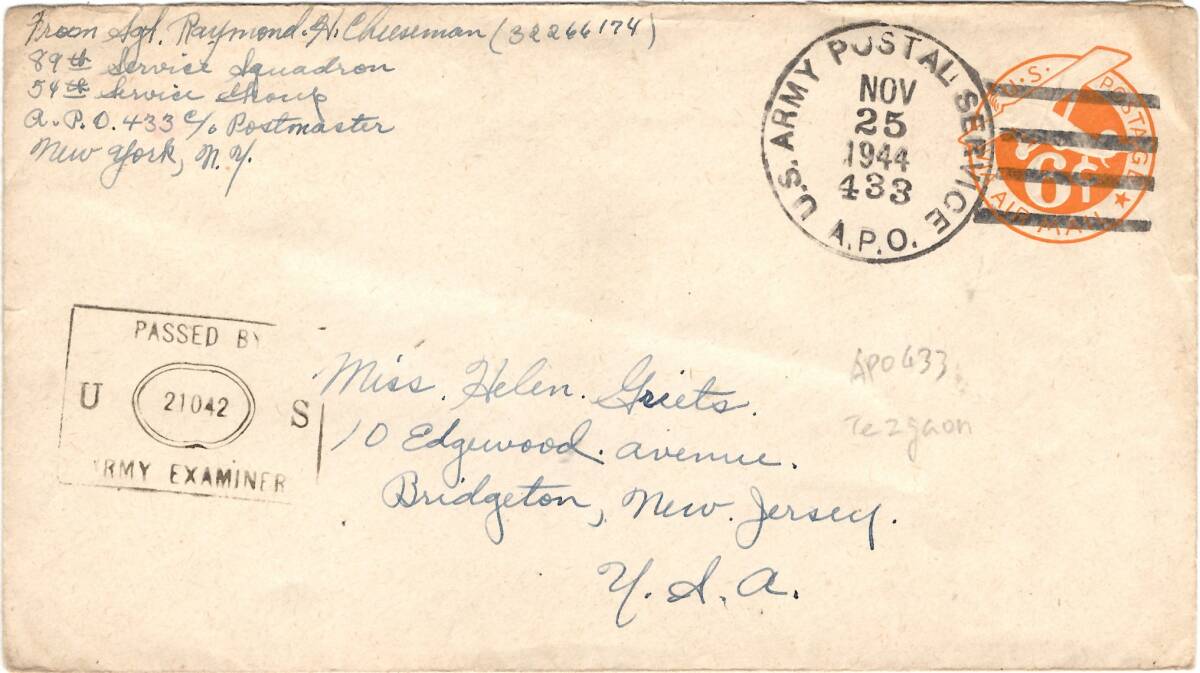 From Sgt. Raymond. H. Cheeseman (32266174)
89th Service Squadron
54th Service Group
A.P.O. 433 c/o Postmaster
New York, N.Y.
U.S. ARMY POSTAL SERVICE
NOV
25
1944
433
A.P.O.
U.S. POSTAGE
6¢
VIA AIR MAIL
PASSED BY
U 21042 S
ARMY EXAMINER
Miss. Helen. Griets.
10 Edgewood. avenue.
Bridgeton, New. Jersey.
U. S. A.
APO 433
Tezgaon